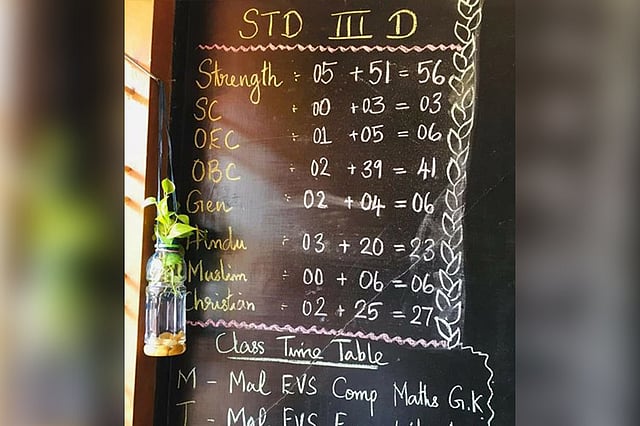 STD III D
Strength : 05 + 51 = 56
SC : 00 + 03 = 03
OEC : 01 + 05 = 06
OBC : 02 + 39 = 41
Gen : 02 + 04 = 06
Hindu : 03 + 20 = 23
Muslim : 00 + 06 = 06
Christian : 02 + 25 = 27
Class Time Table
M - Mal EVS Comp Maths G.K
T - Mal EVS